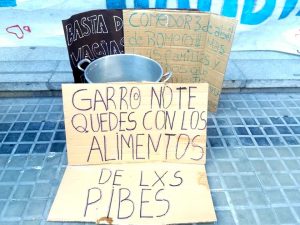 BASTA DE
VACIAS
COMEDOR 3 de abril
de ROMERO
GARR@ NO TE
QUEDES CON LOS
ALIMENTOS
DE LXS
PIBES